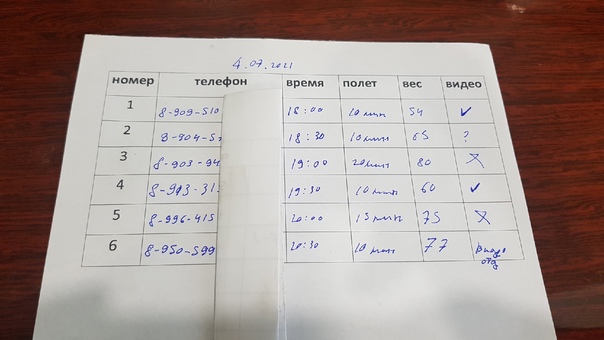 4.07.2021
номер телефон время полет вес видео
1 8-909-510 18:00 10 мин 54 ✓
2 8-904-5 18:30 10 мин 65 ?
3 8-903-94 19:00 20 мин 80 X
4 8-913-31 19:30 10 мин 60 ✓
5 8-996-415 20:00 15 мин 75 X
6 8-950-599 20:30 10 мин 77 видео
отд